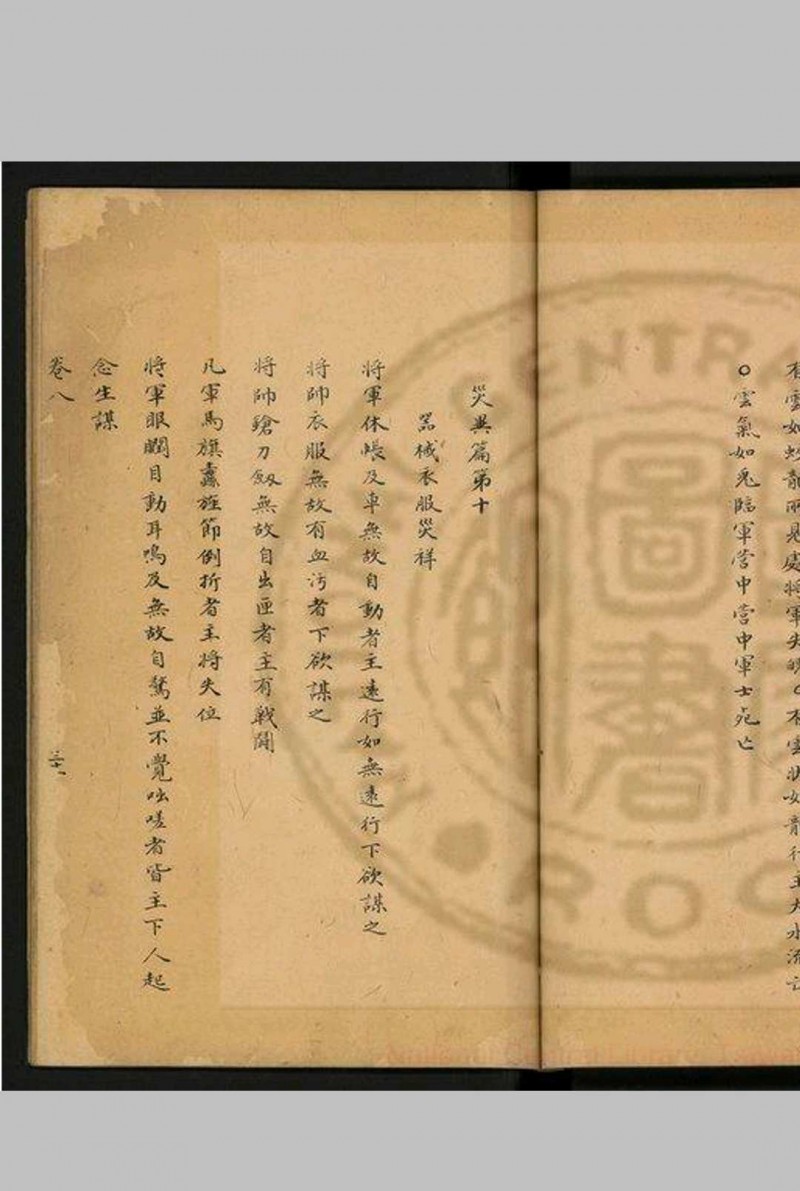 有雲如蛟龍所見處將軍失魄○有雲狀如龍行主大水流亡
○雲氣如兎臨軍營中營中軍士死亡
災異篇第十
器械衣服災祥
將軍休帳及車無故自動者主遠行如無遠行下欲謀之
將帥衣服無故有血污者下欲謀之
將帥鎗刀劔無故自出匣者主有戰鬪
凡軍馬旗纛旌節倒折者主將失位
將軍眼瞤目動耳鳴及無故自驚並不覺咄嗟者皆主下人起
念生謀
卷八
圖書